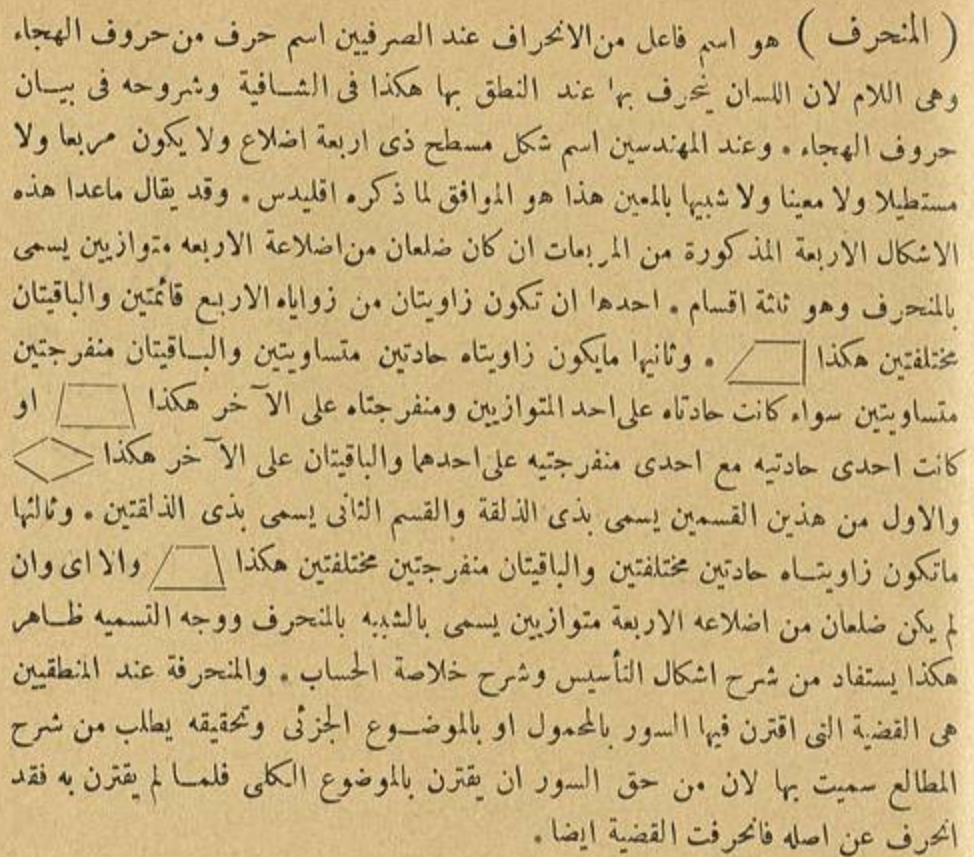 ( المنحرف ) هو اسم فاعل من الانحراف عند الصرفيين اسم حرف من حروف الهجاء
وهى اللام لان اللسان ينحرف بها عند النطق بها هكذا فى الشافية وشروحه فى بيان
حروف الهجاء . وعند المهندسين اسم شكل مسطح ذى اربعة اضلاع ولا يكون مربعا ولا
مستطيلا ولا معينا ولا شبيها بالمعين هذا هو الموافق لما ذكره اقليدس . وقد يقال ماعدا هذه
الاشكال الاربعة المذكورة من المربعات ان كان ضلعان من اضلاعة الاربعه متوازيين يسمى
بالمنحرف وهو ثلثة اقسام . احدها ان تكون زاويتان من زواياه الاربع قائمتين والباقيتان
مختلفتين هكذا . وثانيها مايكون زاويتاه حادتين متساويتين والباقيتان منفرجتين
متساويتين سواء كانت حادتاه على احد المتوازيين ومنفرجتاه على الآخر هكذا او
كانت احدى حادتيه مع احدى منفرجتيه على احدهما والباقيتان على الآخر هكذا
والاول من هذين القسمين يسمى بذى الذلقة والقسم الثانى يسمى بذى الذلقتين . وثالثها
ماتكون زاويتاه حادتين مختلفتين والباقيتان منفرجتين مختلفتين هكذا والا اى وان
لم يكن ضلعان من اضلاعه الاربعة متوازيين يسمى بالشبيه بالمنحرف ووجه التسميه ظاهر
هكذا يستفاد من شرح اشكال التأسيس وشرح خلاصة الحساب . والمنحرفة عند المنطقيين
هى القضية التى اقترن فيها السور بالمحمول او بالموضوع الجزئى وتحقيقه يطلب من شرح
المطالع سميت بها لان من حق السور ان يقترن بالموضوع الكلى فلما لم يقترن به فقد
انحرف عن اصله فانحرفت القضية ايضا .